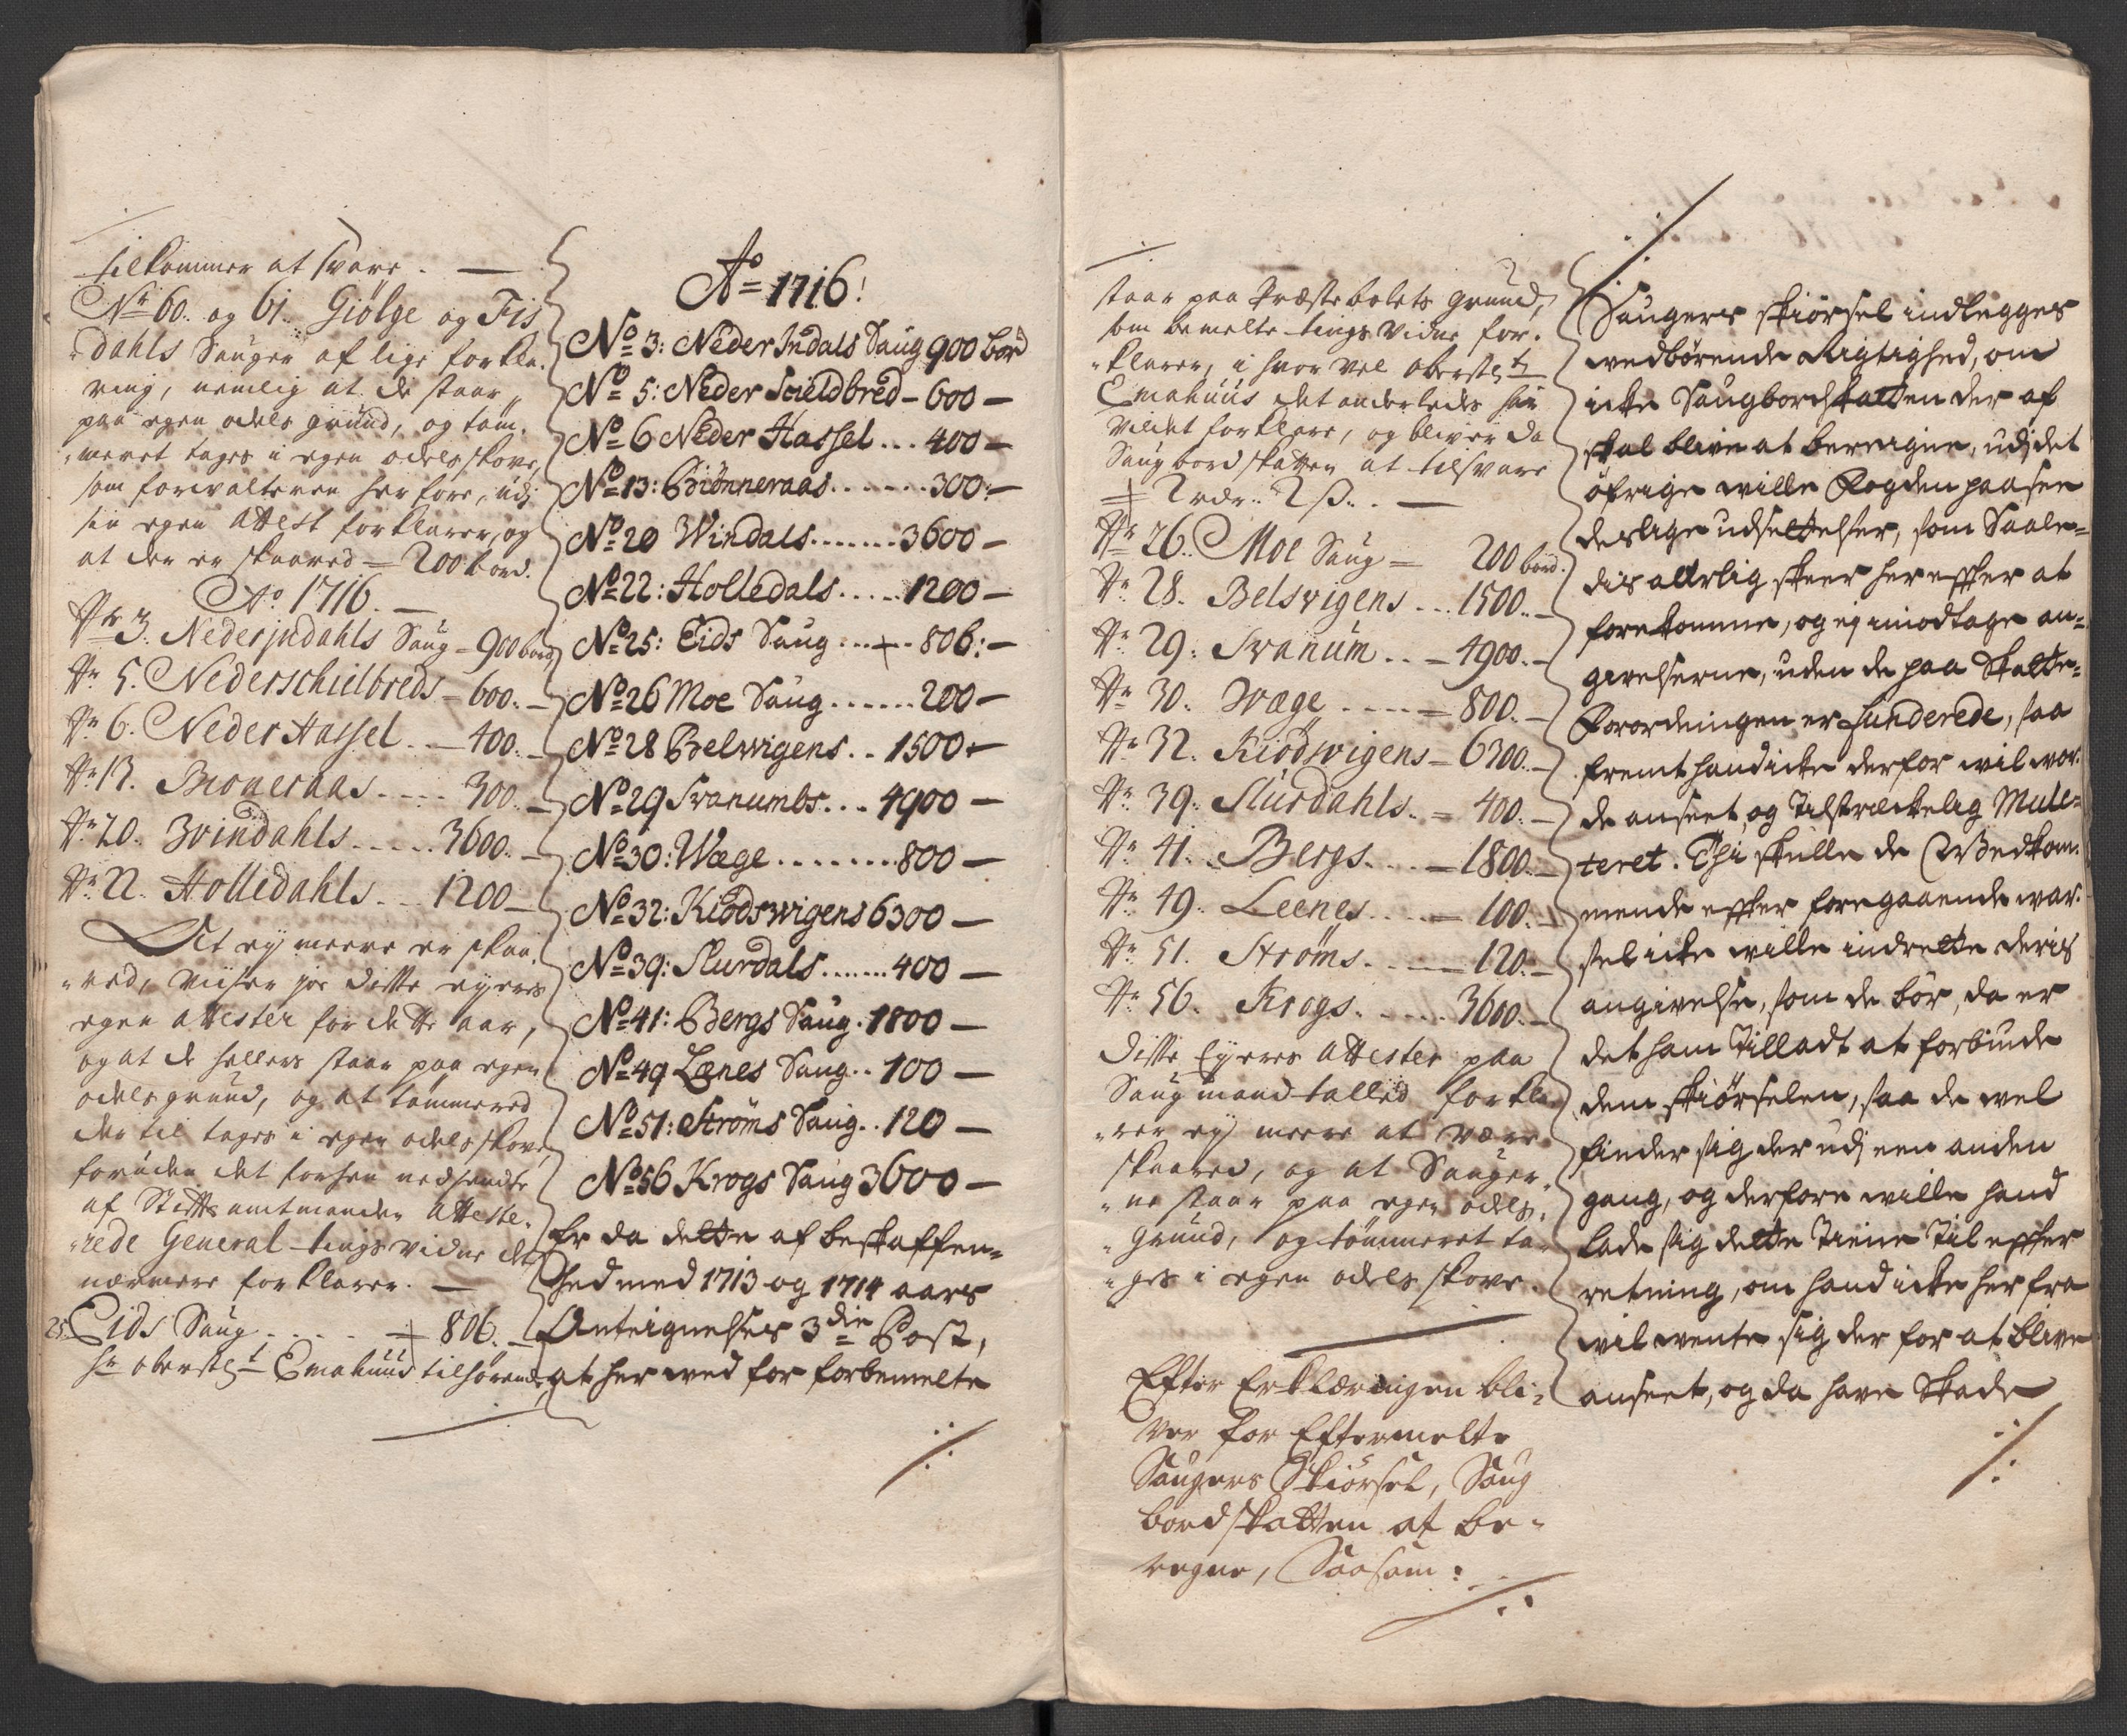 tilkommer at svare. —
Nr 60. og 61. Giølge og Fis
dahls Sauger af lige forkla-
ring, nemlig at de staar
paa egen odels grund, og tøm-
meret tages i egen odels skove,
som forvalteren her fore, udj
sin egen Attest forklarer, og
at der er skaared = 200 bord.
Ao 1716. —
Nr 3. Nederjndahls Saug = 900 bord
Nr 5. Nederschielbreds = 600. —
Nr 6. Neder Hassel . — 400. —
Nr 13. Bioneraas . . . . 300. —
Nr 20. Windahls . . . . . 3600. —
Nr 22. Holledahls . . . 1200 —
At ey meere er skaa-
red, viiser jo disse eyeres
egen attester for dette aar,
og at de hellers staar paa egen
odels grund, og at tømmered
der til tages i egen odels skove,
foruden det forhen nedsendte
af Stiftsamtmanden atteste-
rede General-tingsvidne det
nærmere forklarer. —
25. Eids Saug . . . . = 806. —
hr oberstlt Emahuus tilhørende,
Ao 1716!
No 3: Neder Indals Saug 900 bord
No 5: Neder Scieldbred – 600 —
No 6 Neder Hassel . . . 400 —
No 13: Biønneraas . . . . . . 300: —
No 20 Windals . . . . . . . 3600 —
No 22: Holledals . . . . . 1200 —
No 25: Eids Saug . . . . . 806: —
No 26 Moe Saug . . . . . . 200 —
No 28 Belwigens . . 1500 —
No 29 Svanumbs . . . 4900 —
No 30: Wæge . . . . . . . . 800 —
No 32: Kiødswigens 6300 —
No 39: Slurdals . . . . . . 400 —
No 41: Bergs Saug . 1800 —
No 49 Lænes Saug . . 100 —
No 51: Strøms Saug . . 120 —
No 56 Krogs Saug 3600 —
Er da dette af beskaffen-
hed med 1713 og 1714 aars
Anteignelses 3die Post,
at her ved for forbemelte
staar paa Præstebolets grund,
som bemelte tings vidne for-
klarer, i hvor vel oberstlt
Emahuus det anderledes har
vildet forklare, og bliver da
Saugbordskatten at tilsvare
= 2 rdr. 2 s. . —
Nr 26. Moe Saug = 200 bord.
Nr 28. Belsvigens . . . 1500. —
Nr 29. Svanum . . = 4900. —
Nr 30. Wæge . . . . = 800. —
Nr 32. Kiødsvigens = 6300. —
Nr 39. Slurdahls. = 400. —
Nr 41. Bergs . . . . = 1800. —
Nr 49. Leenes . . . . = 100. —
Nr 51. Strøms . . . . — 120. —
Nr 56. Krogs . . . . . 3600. —
Disse Eyeres attester paa
Saugmandtalled forkla-
rer ey meere at være
skaared, og at Sauger-
ne staar paa egen odels
Grund, og tømmeret ta-
ges i egen odels skove.
Efter Erklæringen bli-
ver for Eftermelte
Saugers Skiørsel, Saug
bordskatten at be-
regne, Saasom:
Saugers skiørsel indlegges
vedbørende Rigtighed, om
icke Saugbordskatten der af
skal blive at beregne, udj det
øfrige wille Fogden paasee
deslige udsettelser, som Saale-
dis aarlig skeer her effter at
forekomme, og ej imodtage an-
givelserne, uden de paa Skatte-
Forordningen er funderede, saa
fremt hand icke derfor wil wor-
de anseet, og Tilstreckelig Mulc-
teret. Thi skulle de Wedkom-
mende effter foregaaende war-
sel icke wille indrette deris
angivelse, som de bør, da er
det ham Tilladt at forbiude
dem skiørselen, saa de wel
finder sig der udj een anden
gang, og derfore wille hand
lade sig dette Tiene Til effter
retning, om hand icke her fra
wil wente sig der for at blive
anseet, og da have Skade